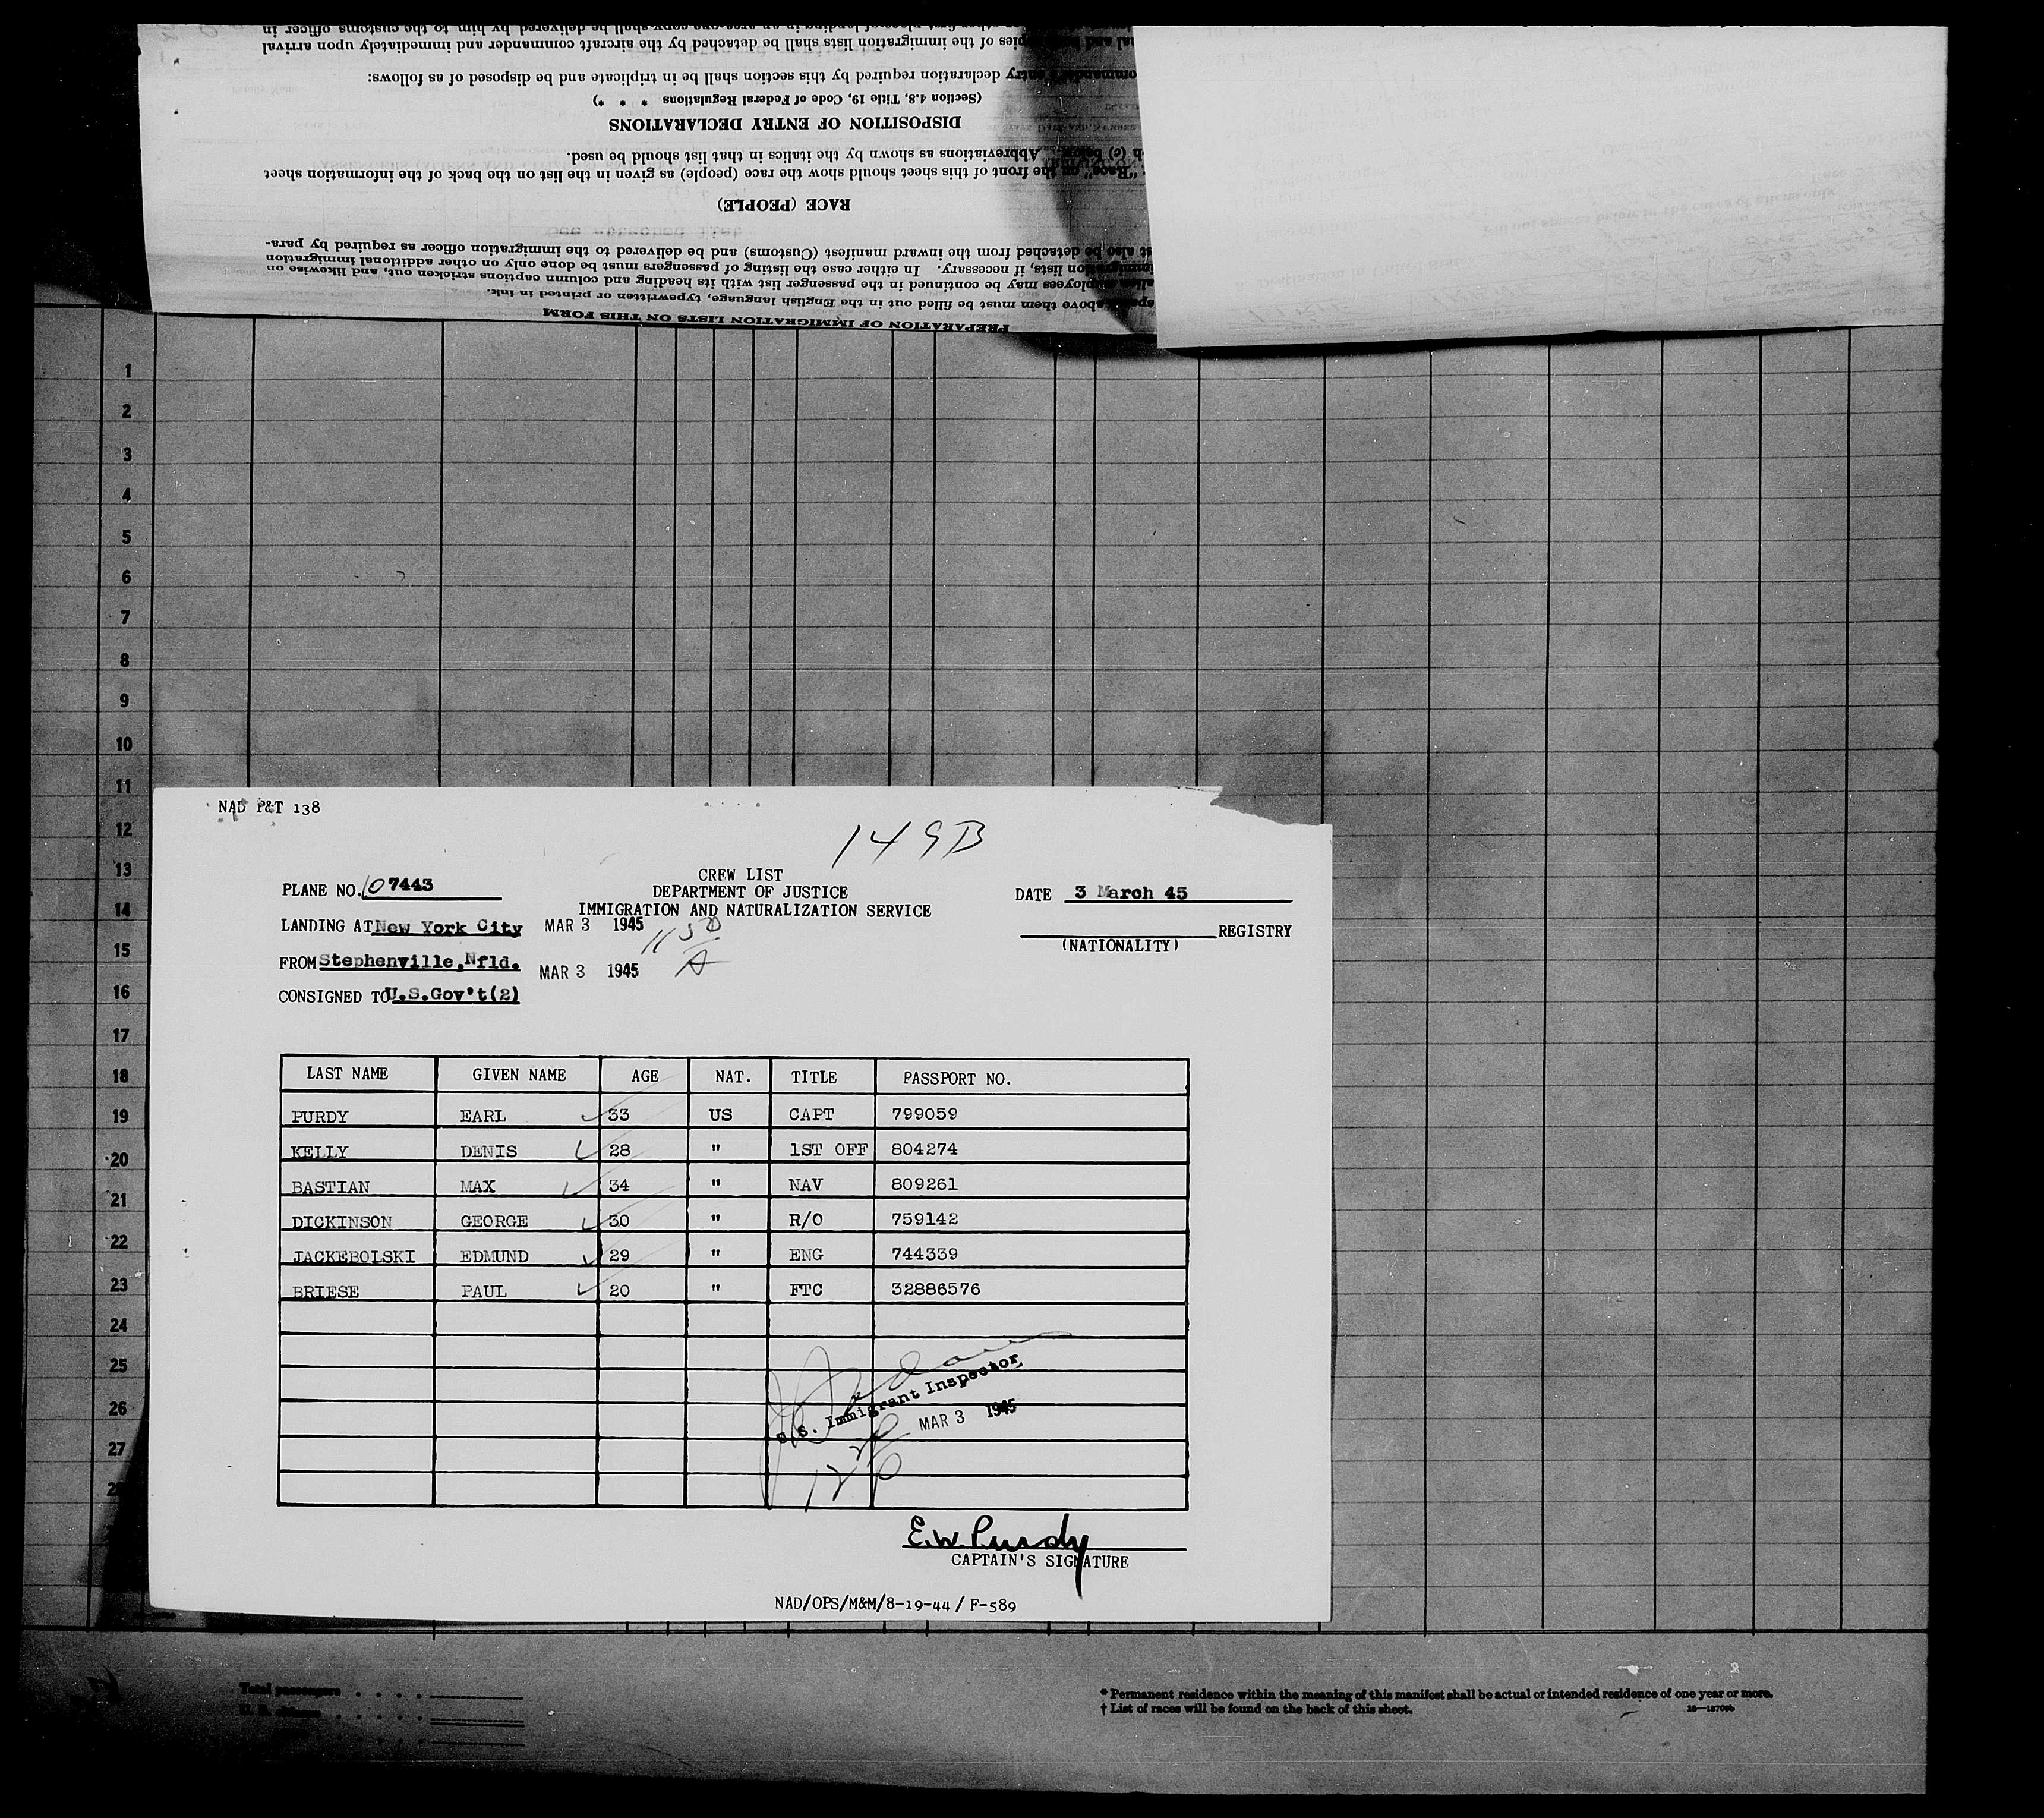 ual and two copies of the immigration lists shall be detached by the aircraft commander and immediately upon arrival
commander's entry declaration required by this section shall be in triplicate and be disposed of as follows:
(Section 4.8, Title 19, Code of Federal Regulations * * *)
DISPOSITION OF ENTRY DECLARATIONS
h (c) below. Abbreviations as shown by the italics in that list should be used.
"Race" on the front of this sheet should show the race (people) as given in the list on the back of the information sheet
RACE (PEOPLE)
st also be detached from the inward manifest (Customs) and be delivered to the immigration officer as required by para-
immigration lists, if necessary. In either case the listing of passengers must be done only on other additional immigration
employees may be continued in the passenger list with its heading and column captions stricken out, and likewise on
above them must be filled out in the English language, typewritten or printed in ink.
PREPARATION OF IMMIGRATION LISTS ON THIS FORM
1
2
3
4
5
6
7
8
9
10
11
12
13
14
15
16
17
18
19
20
21
22
23
24
25
26
27
NAD P&T 138
149B
CREW LIST
PLANE NO. 107443 DEPARTMENT OF JUSTICE DATE 3 March 45
IMMIGRATION AND NATURALIZATION SERVICE
LANDING AT New York City MAR 3 1945 REGISTRY
(NATIONALITY)
1150
A
FROM Stephenville,Nfld. MAR 3 1945
CONSIGNED TO U.S.Gov't(2)
LAST NAME GIVEN NAME AGE NAT. TITLE PASSPORT NO.
PURDY EARL 33 US CAPT 799059
KELLY DENIS 28 " 1ST OFF 804274
BASTIAN MAX 34 " NAV 809261
DICKINSON GEORGE 30 " R/O 759142
JACKEBOLSKI EDMUND 29 " ENG 744339
BRIESE PAUL 20 " FTC 32886576
U.S. Immigrant Inspector
MAR 3 1945
E.W. Purdy
CAPTAIN'S SIGNATURE
NAD/OPS/M&M/8-19-44/ F-589
Total passengers . . . .
* Permanent residence within the meaning of this manifest shall be actual or intended residence of one year or more.
† List of races will be found on the back of this sheet.